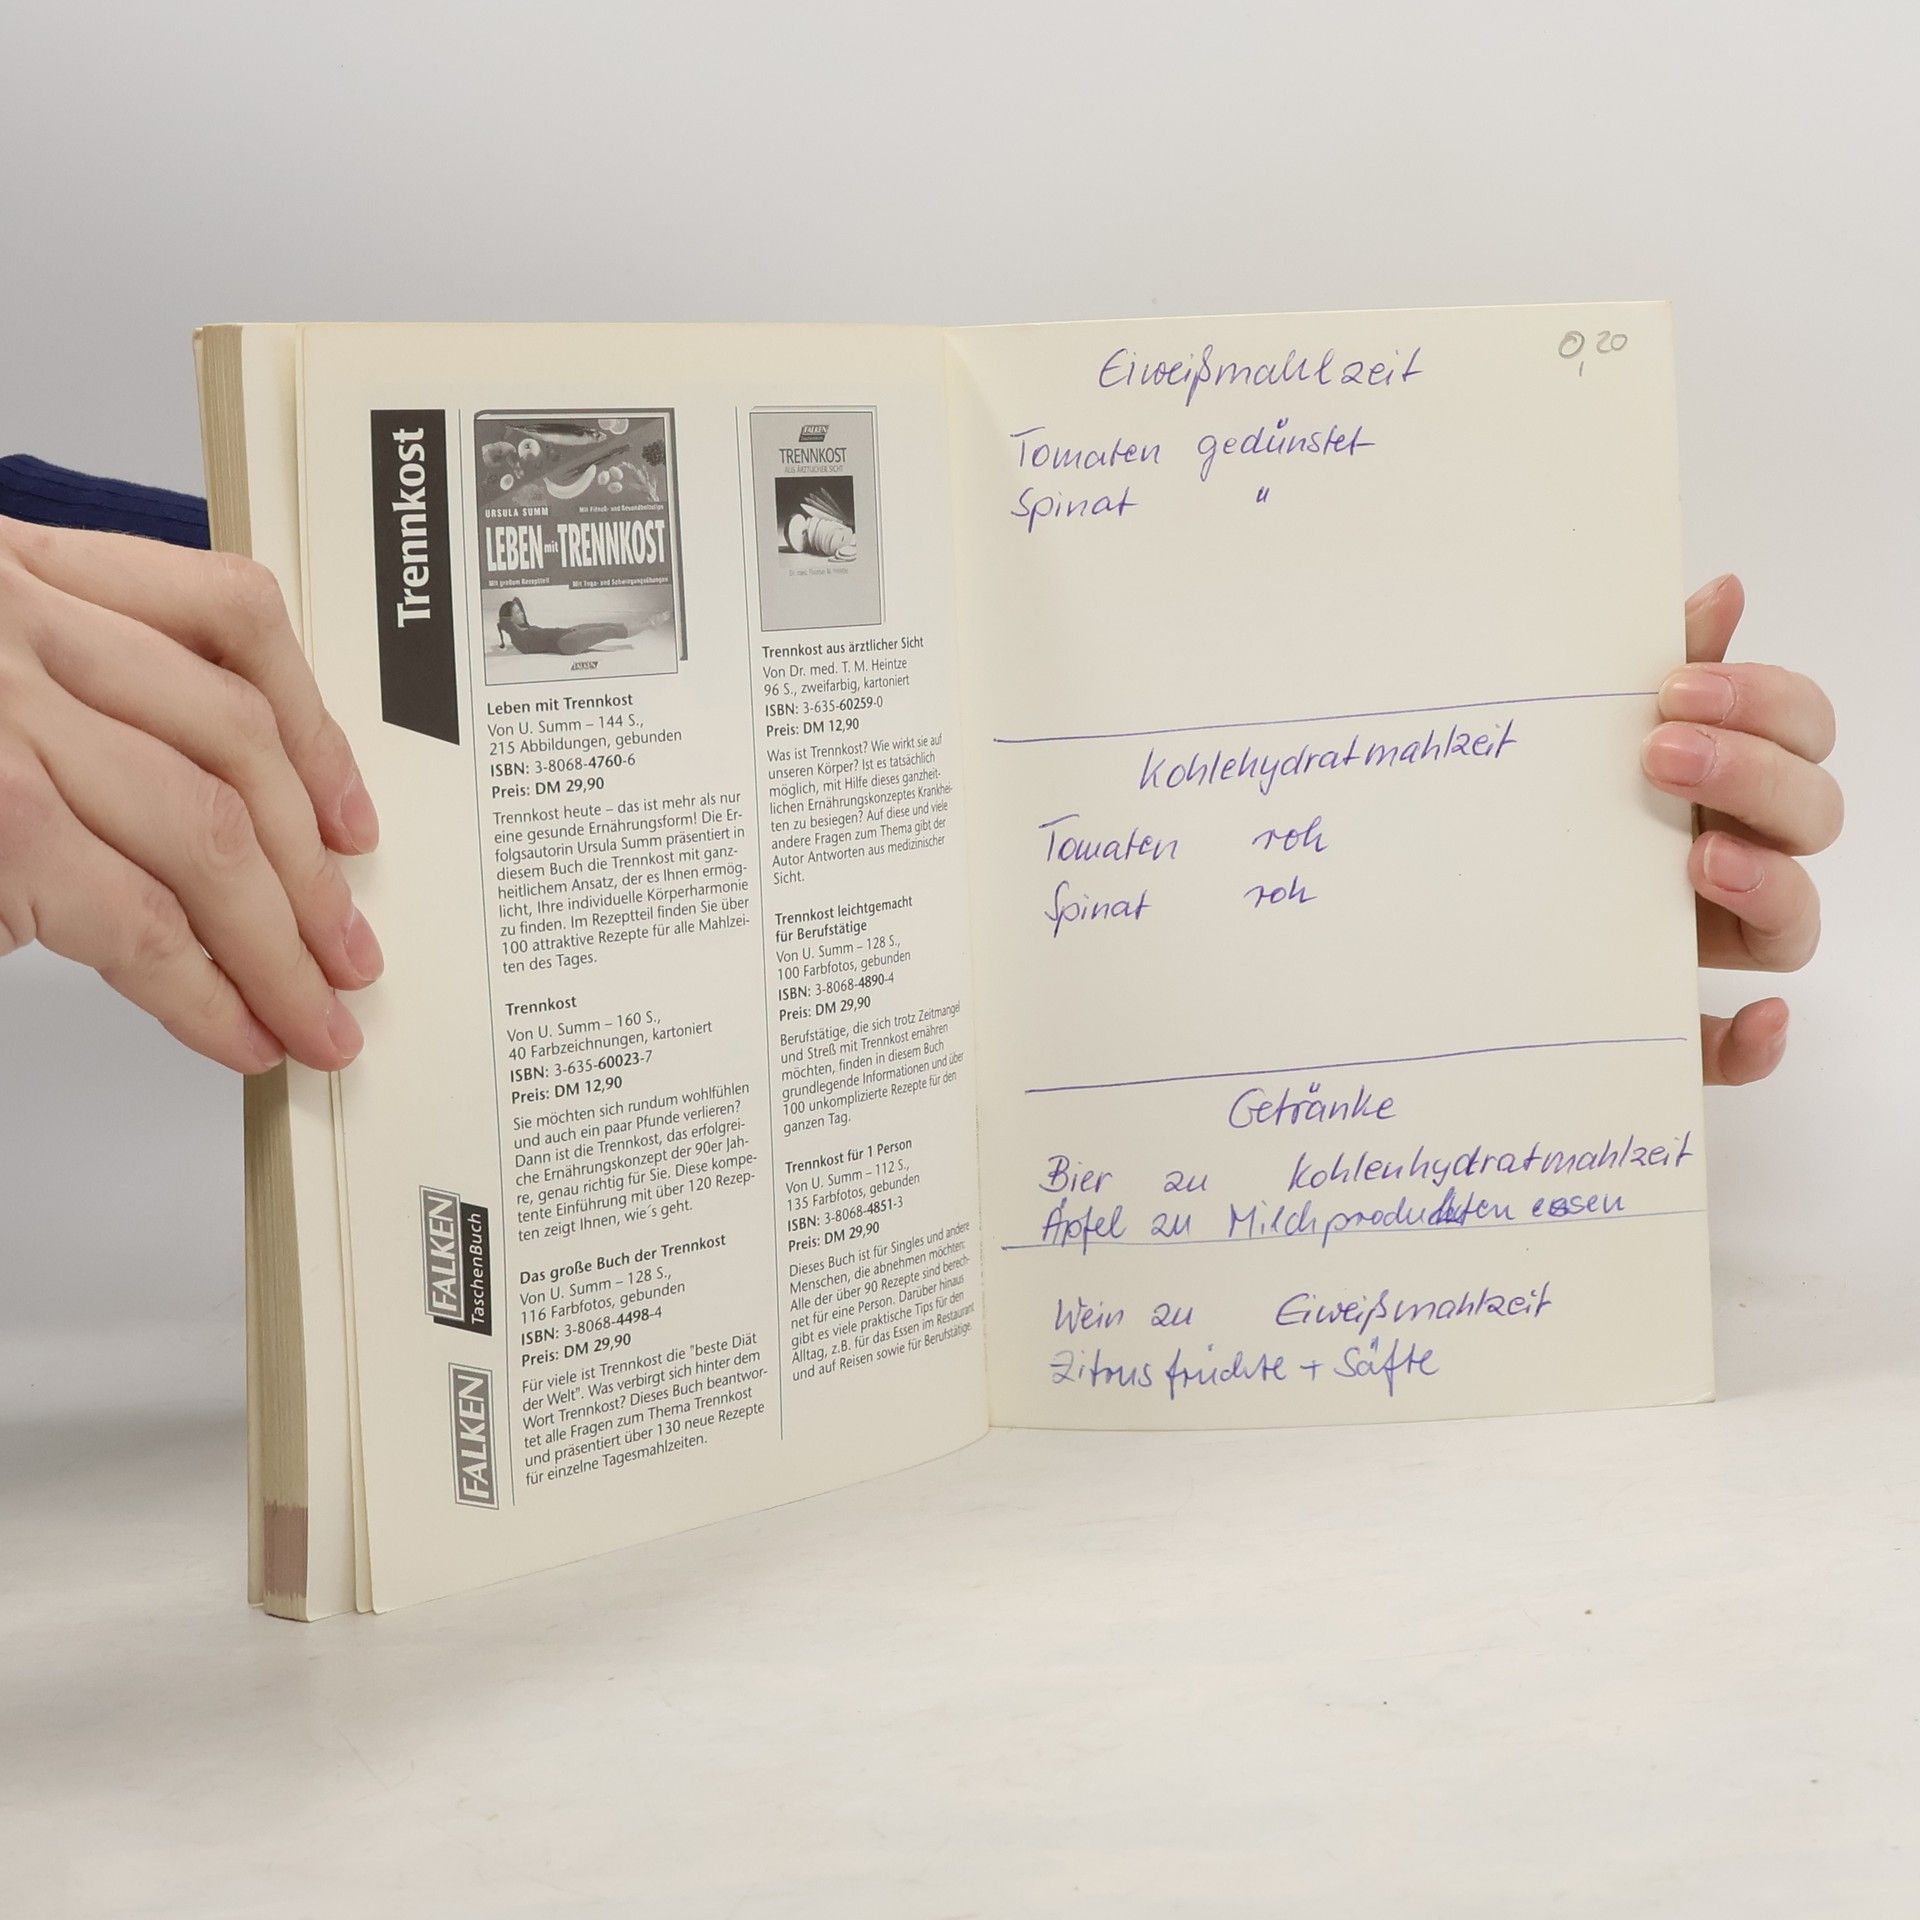 Trennkost
URSULA SUMM
Mit Fitneß- und Gesundheitstips
LEBEN mit TRENNKOST
Mit großem Rezeptteil
Mit Yoga- und Schwingungsübungen
FALKEN
Leben mit Trennkost
Von U. Summ – 144 S.,
215 Abbildungen, gebunden
ISBN: 3-8068-4760-6
Preis: DM 29,90
Trennkost heute – das ist mehr als nur
eine gesunde Ernährungsform! Die Er-
folgsautorin Ursula Summ präsentiert in
diesem Buch die Trennkost mit ganz-
heitlichem Ansatz, der es Ihnen ermög-
licht, Ihre individuelle Körperharmonie
zu finden. Im Rezeptteil finden Sie über
100 attraktive Rezepte für alle Mahlzei-
ten des Tages.
Trennkost
Von U. Summ – 160 S.,
40 Farbzeichnungen, kartoniert
ISBN: 3-635-60023-7
Preis: DM 12,90
Sie möchten sich rundum wohlfühlen
und auch ein paar Pfunde verlieren?
Dann ist die Trennkost, das erfolgrei-
che Ernährungskonzept der 90er Jah-
re, genau richtig für Sie. Diese kompe-
tente Einführung mit über 120 Rezep-
ten zeigt Ihnen, wie´s geht.
Das große Buch der Trennkost
Von U. Summ – 128 S.,
116 Farbfotos, gebunden
ISBN: 3-8068-4498-4
Preis: DM 29,90
Für viele ist Trennkost die "beste Diät
der Welt". Was verbirgt sich hinter dem
Wort Trennkost? Dieses Buch beantwor-
tet alle Fragen zum Thema Trennkost
und präsentiert über 130 neue Rezepte
für einzelne Tagesmahlzeiten.
FALKEN
TaschenBuch
FALKEN
FALKEN
TRENNKOST
AUS ÄRZTLICHER SICHT
Dr. med. Thomas M. Heintze
Trennkost aus ärztlicher Sicht
Von Dr. med. T. M. Heintze
96 S., zweifarbig, kartoniert
ISBN: 3-635-60259-0
Preis: DM 12,90
Was ist Trennkost? Wie wirkt sie auf
unseren Körper? Ist es tatsächlich
möglich, mit Hilfe dieses ganzheit-
lichen Ernährungskonzeptes Krankhei-
ten zu besiegen? Auf diese und viele
andere Fragen zum Thema gibt der
Autor Antworten aus medizinischer
Sicht.
Trennkost leichtgemacht
für Berufstätige
Von U. Summ – 128 S.,
100 Farbfotos, gebunden
ISBN: 3-8068-4890-4
Preis: DM 29,90
Berufstätige, die sich trotz Zeitmangel
und Streß mit Trennkost ernähren
möchten, finden in diesem Buch
grundlegende Informationen und über
100 unkomplizierte Rezepte für den
ganzen Tag.
Trennkost für 1 Person
Von U. Summ – 112 S.,
135 Farbfotos, gebunden
ISBN: 3-8068-4851-3
Preis: DM 29,90
Dieses Buch ist für Singles und andere
Menschen, die abnehmen möchten.
Alle der über 90 Rezepte sind berech-
net für eine Person. Darüber hinaus
gibt es viele praktische Tips für den
Alltag, z.B. für das Essen im Restaurant
und auf Reisen sowie für Berufstätige.
0,20
Eiweißmahlzeit
Tomaten gedünstet
Spinat "
Kohlehydratmahlzeit
Tomaten roh
Spinat roh
Getränke
Bier zu Kohlenhydratmahlzeit
Äpfel zu Milchprodukten essen
Wein zu Eiweißmahlzeit
Zitrusfrüchte + Säfte